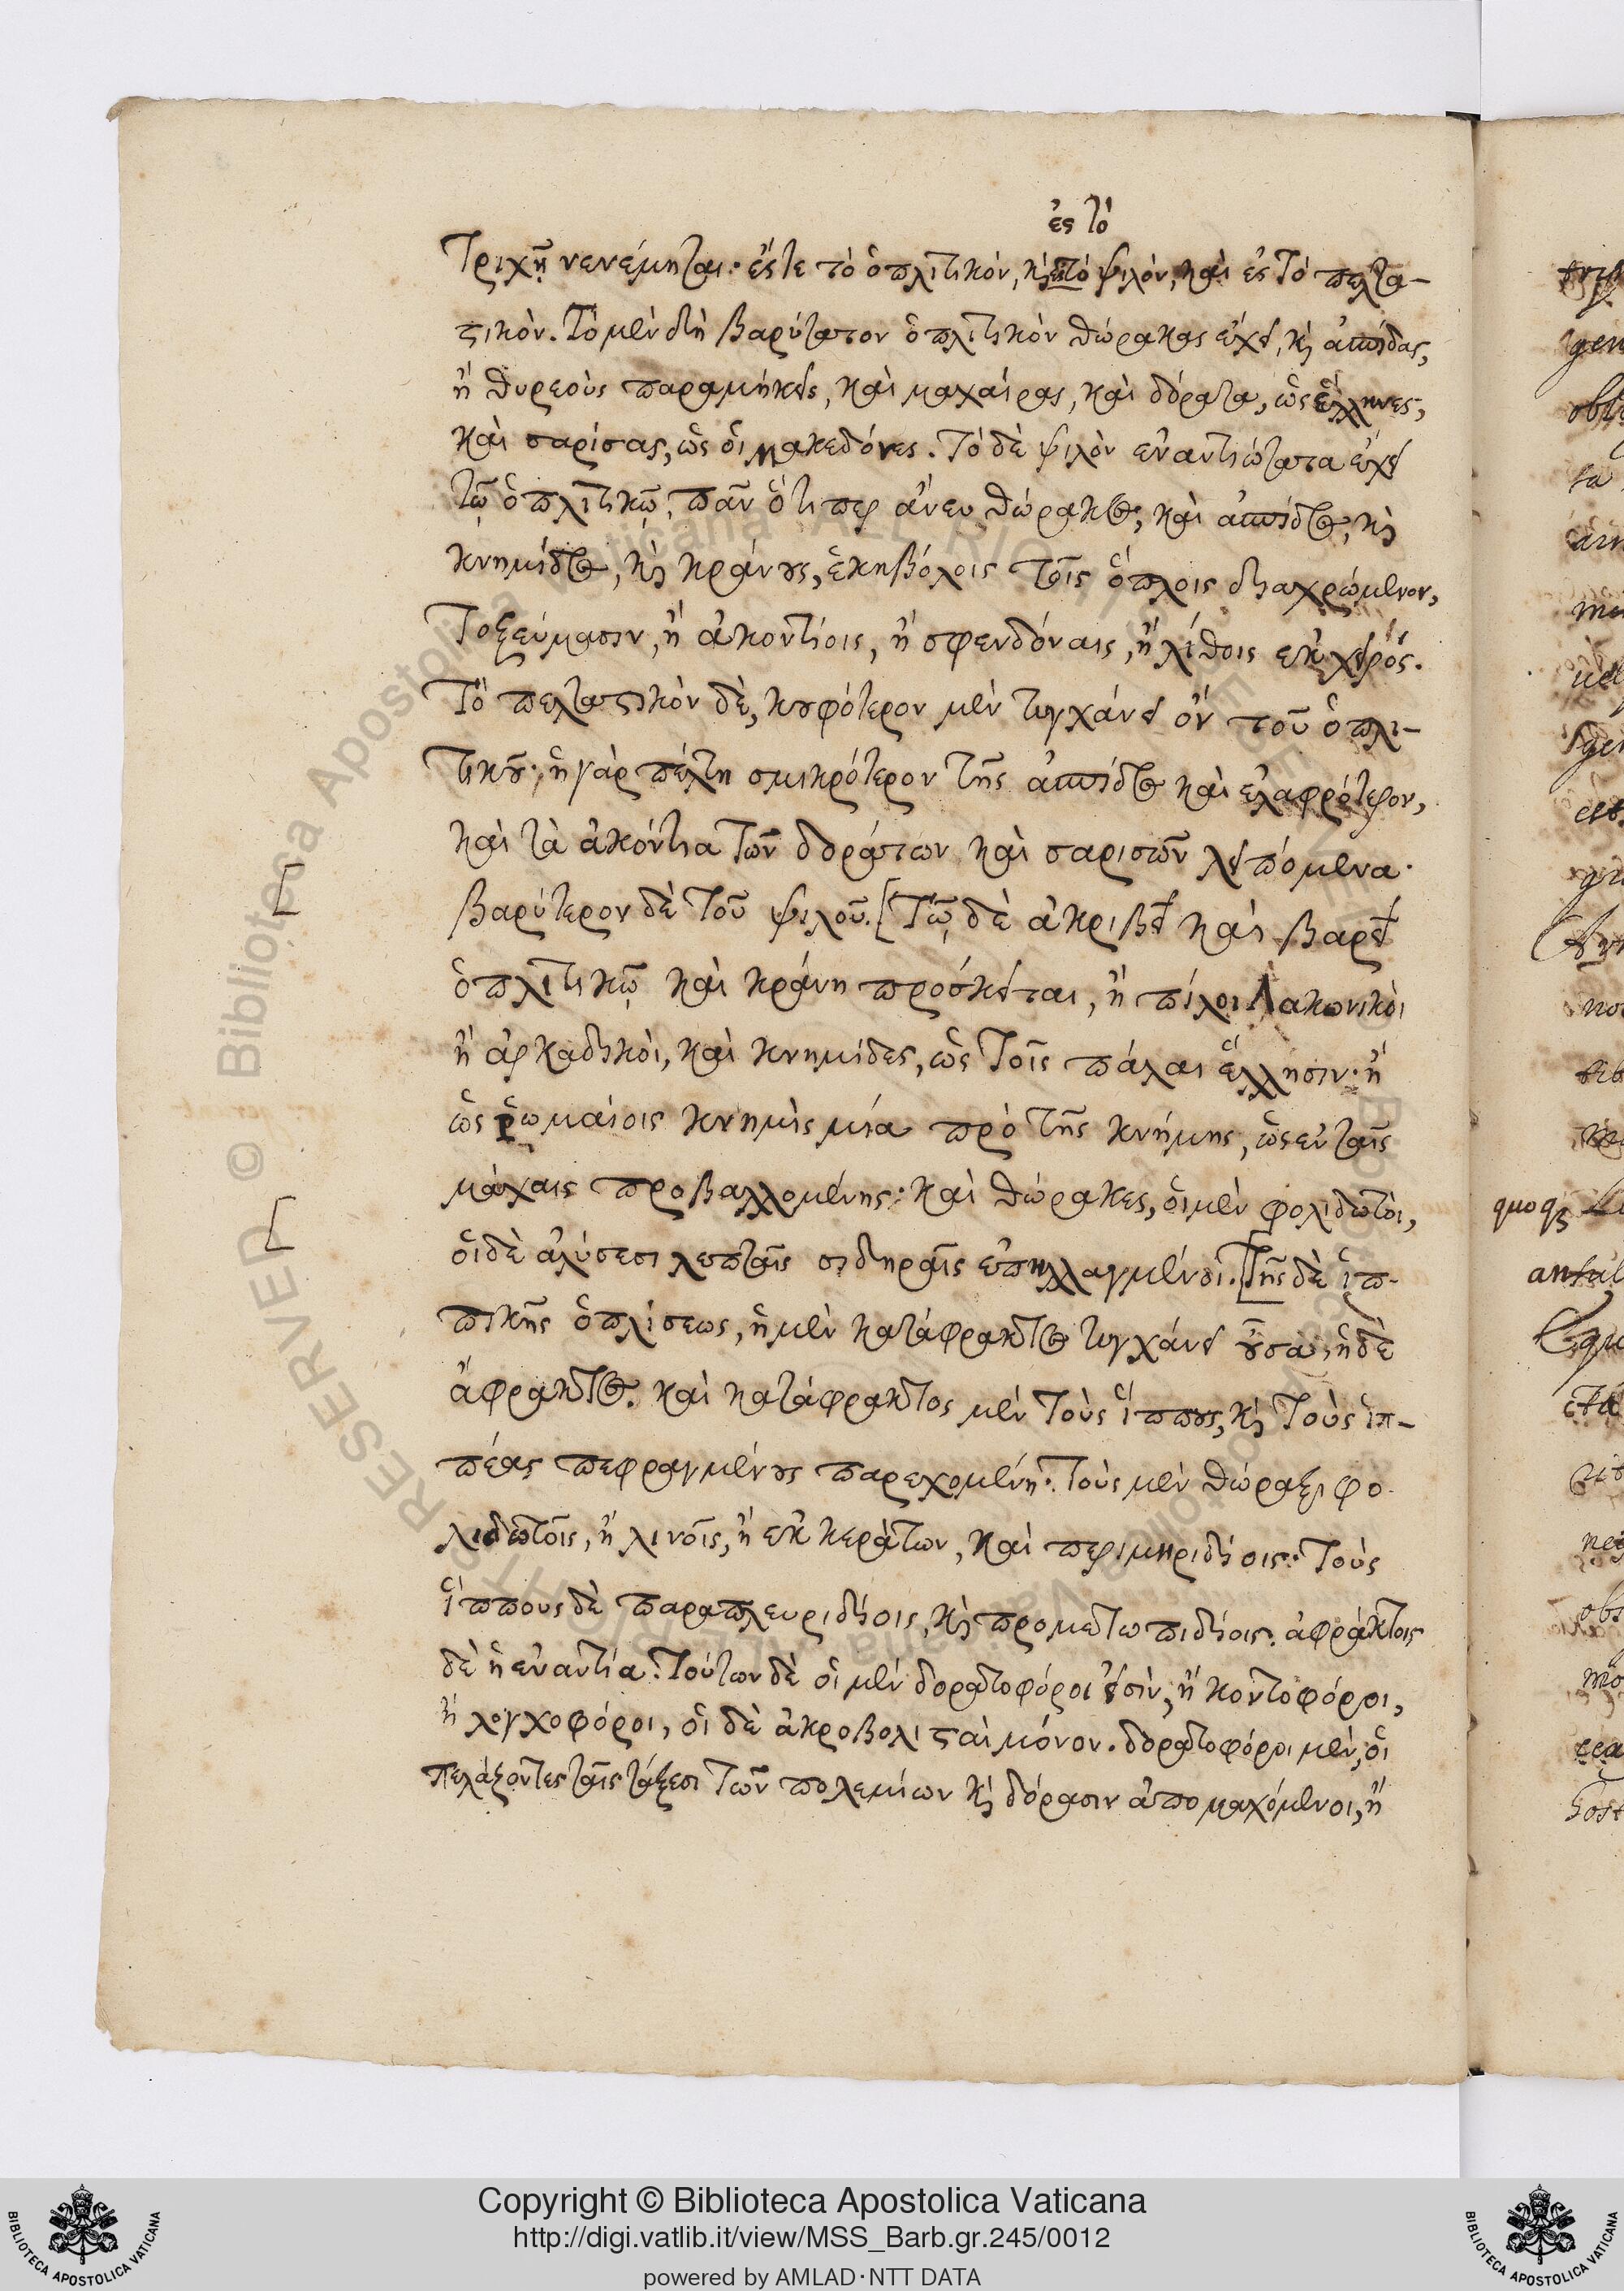 ἐς τὸ
Τριχῆ νενέμηται· ἔς τε τὸ ὁπλιτικόν, καὶ ἐς τὸ ψιλόν, καὶ ἐς τὸ πελτα-
στικόν. Τὸ μὲν δὴ βαρύτατον ὁπλιτικὸν θώρακας ἔχει, καὶ ἀσπίδας,
ἢ θυρεοὺς παραμήκεις, καὶ μαχαίρας, καὶ δόρατα, ὡς ἕλληνες,
καὶ σαρίσας, ὡς οἱ μακεδόνες. Τὸ δὲ ψιλὸν ἐναντιώτατα ἔχει
τῷ ὁπλιτικῷ, πᾶν ὅτι περ ἄνευ θώρακος, καὶ ἀσπίδος, καὶ
κνημίδος, καὶ κράνους, ἑκηβόλοις τοῖς ὅπλοις διαχρώμενον,
Τοξεύμασιν, ἢ ἀκοντίοις, ἢ σφενδόναις, ἢ λίθοις ἐκ χειρός.
Τὸ πελταστικὸν δὲ, κουφότερον μὲν τυγχάνει ὂν τοῦ ὁπλι-
τικοῦ· ἡ γὰρ πέλτη σμικρότερον τῆς ἀσπίδος καὶ ἐλαφρότερον,
καὶ τὰ ἀκόντια τῶν δοράτων καὶ σαρισῶν λειπόμενα·
βαρύτερον δὲ τοῦ ψιλοῦ. [Τῷ δὲ ἀκριβεῖ καὶ βαρεῖ
ὁπλιτικῷ καὶ κράνη πρόσκειται, ἢ πῖλοι Λακωνικοὶ
ἢ ἀρκαδικοὶ, καὶ κνημίδες, ὡς τοῖς πάλαι ἕλλησιν· ἢ
ὡς ῥωμαίοις κνημὶς μία πρὸ τῆς κνήμης, ὡς ἐν ταῖς
μάχαις προβαλλομένης· καὶ θώρακες, οἱ μὲν φολιδωτοὶ,
οἱ δὲ ἁλύσεσι λεπταῖς σιδηραῖς ἐπηλλαγμένοι. [Τῆς δὲ ἱπ-
πικῆς ὁπλίσεως, ἡ μὲν κατάφρακτος τυγχάνει οὖσα, ἡ δὲ
ἄφρακτος. καὶ κατάφρακτος μὲν τοὺς ἵππους, καὶ τοὺς ἱπ-
πέας πεφραγμένους παρεχομένη· τοὺς μὲν θώραξι φο-
λιδωτοῖς, ἢ λινοῖς, ἢ ἐκ κεράτων, καὶ περιμηριδίοις· τοὺς
ἵππους δὲ παραπλευριδίοις, καὶ προμετωπιδίοις. ἀφράκτοις
δὲ ἡ ἐναντία. Τούτων δὲ οἱ μὲν δορατοφόροι εἰσὶν, ἢ κοντοφόροι,
ἢ λογχοφόροι, οἱ δὲ ἀκροβολισταὶ μόνον. δορατοφόροι μὲν, οἱ
πελάζοντες ταῖς τάξεσι τῶν πολεμίων καὶ δόρασιν ἀπομαχόμενοι, ἢ
quoque
Copyright © Biblioteca Apostolica Vaticana
http://digi.vatlib.it/view/MSS_Barb.gr.245/0012
powered by AMLAD·NTT DATA
BIBLIOTECA APOSTOLICA VATICANA
BIBLIOTECA APOSTOLICA VATICANA